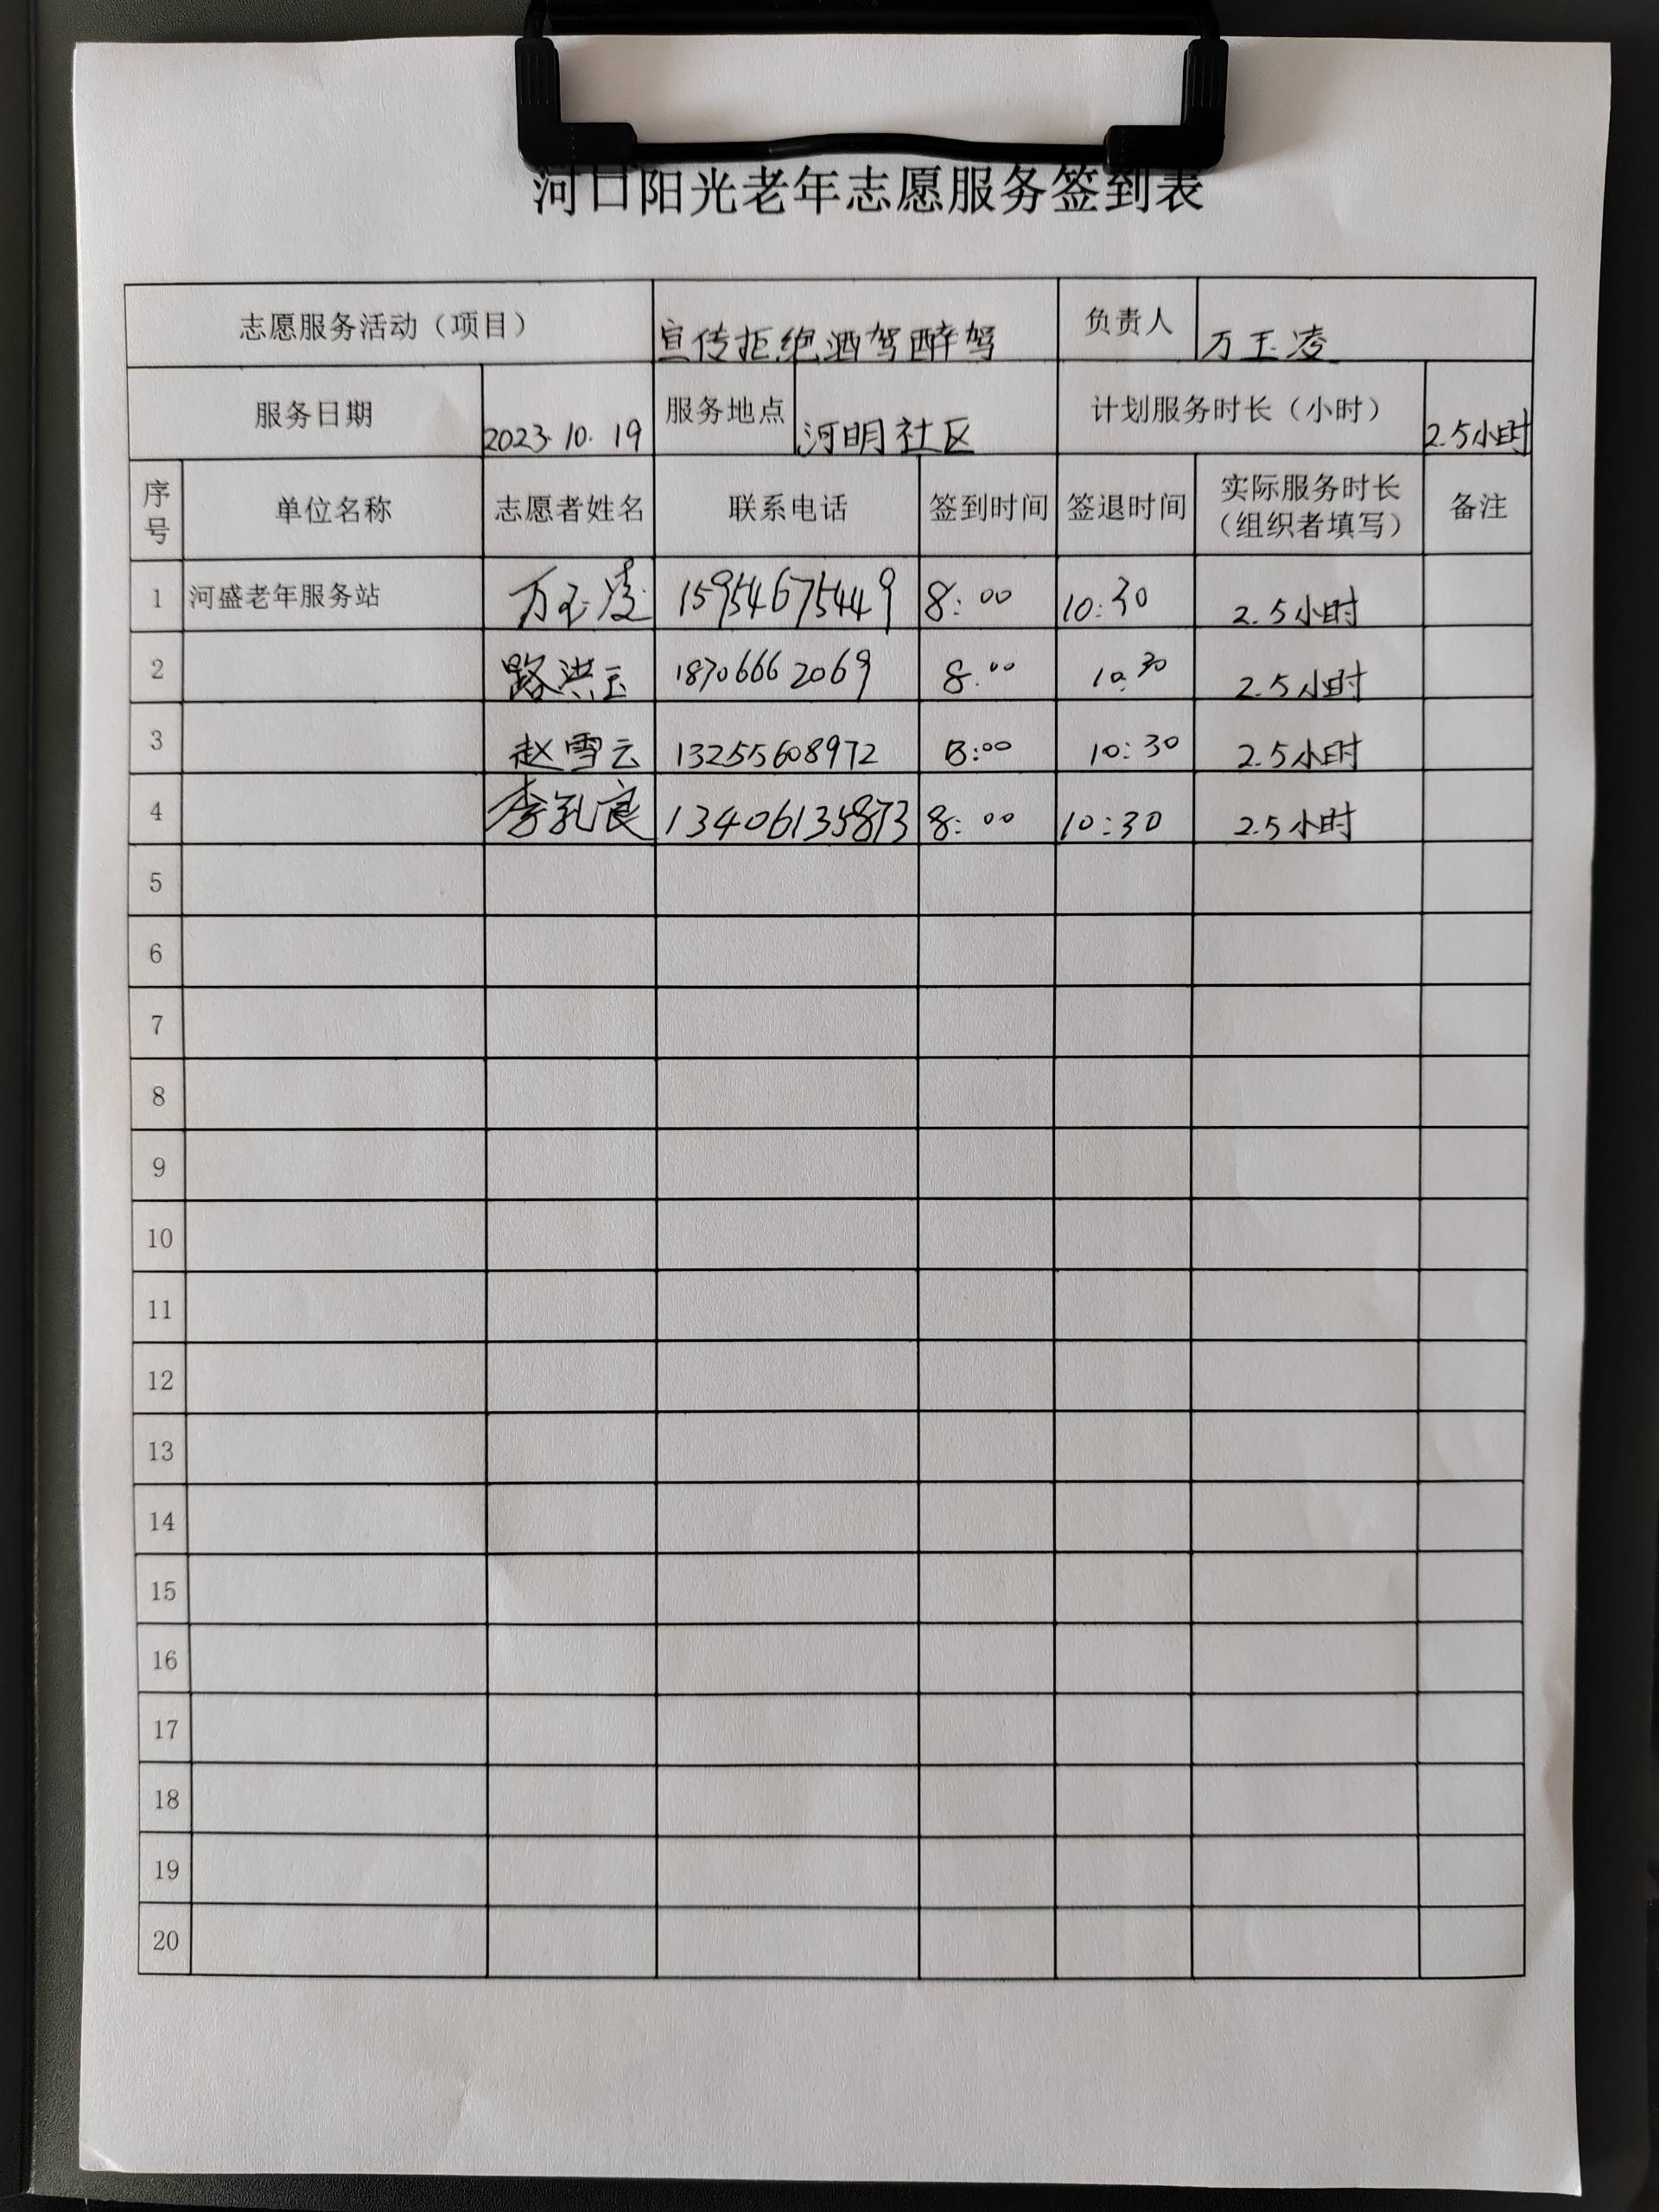 河口阳光老年志愿服务签到表
志愿服务活动（项目） 宣传拒绝酒驾醉驾 负责人 万玉凌
服务日期 2023.10.19 服务地点 河明社区 计划服务时长（小时） 2.5小时
序号 单位名称 志愿者姓名 联系电话 签到时间 签退时间 实际服务时长（组织者填写） 备注
1 河盛老年服务站 万玉凌 15954675449 8:00 10:30 2.5小时
2 路洪玉 18706662069 8:00 10:30 2.5小时
3 赵雪云 13255608972 8:00 10:30 2.5小时
4 李乳良 13406135873 8:00 10:30 2.5小时
5
6
7
8
9
10
11
12
13
14
15
16
17
18
19
20